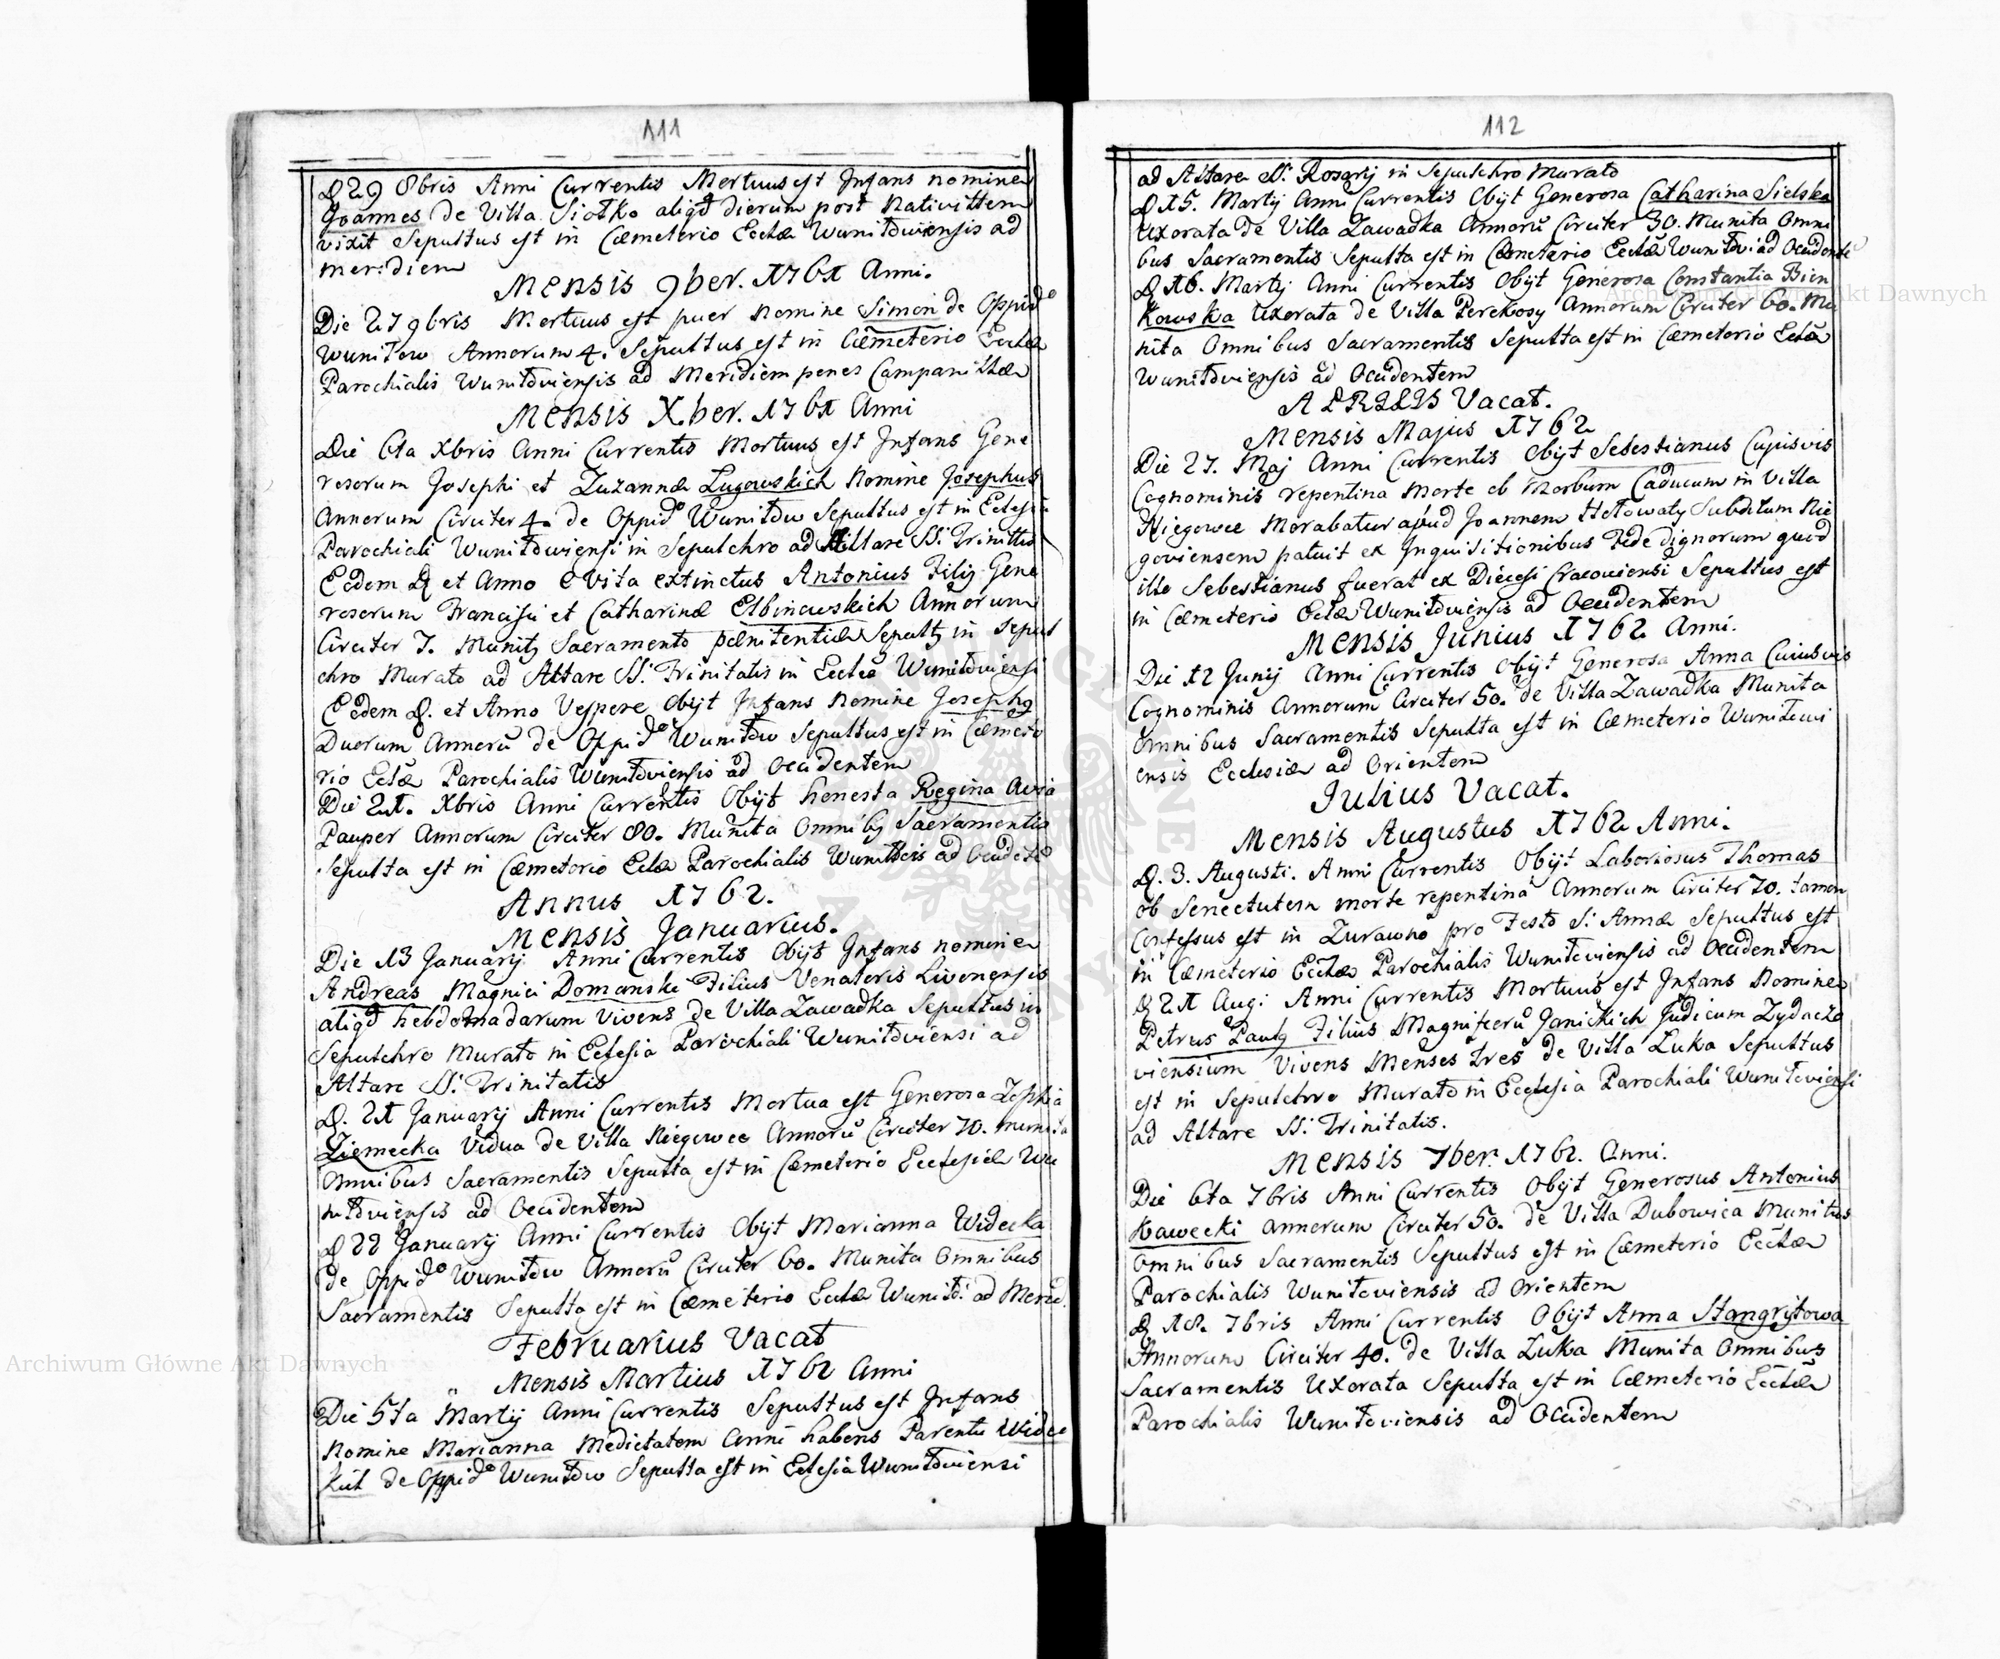 111
D 29 8bris Anni Currentis Mertuus est Infans nomine
Joannes de Villa Siołko aliqd dierum post Nativittem
vixit Sepultus est in Cæmeterio Eccłæ Wuniłoviensis ad
meridiem
Mensis 9ber. 1761 Anni.
Die 27 9bris Mertuus est puer Nomine Simon de Oppido
Wuniłow Annorum 4. Sepultus est in Cæmeterio Eccłæ
Parochialis Wuniłoviensis ad Meridiem penes Campanillæ
Mensis X.ber. 1761 Anni
Die 6ta Xbris Anni Currentis Mortuus est Infans Gene
rosorum Josephi et Zuzannæ Ługowskich Nomine Josephus
Annorum Circiter 4. de Oppido Wuniłow Sepultus est in Eclesia
Parochiali Wuniłoviensi in Sepulchro ad Altare SS. Trinittis
Eodem D et Anno e Vita extinctus Antonius Filiq Gene
rosorum Francisci et Catharinæ Elbinowskich Annorum
Circiter 7. Munitq Sacramento pœnitentiæ Sepultq in Sepul
chro Murato ad Altare SS. Trinitatis in Eccłæ Wuniłoviensi
Eodem D. et Anno Vespere Obijt Infans Nomine Josephq
Duorum Annorū de Oppido Wuniłow Sepultus est in Cæmete
rio Eccłæ Parochialis Wuniłoviensis ad Occidentem
Die 21. Xbris Anni Currentis Obijt honesta Regina Avia
Pauper Annorum Circiter 80. Munita Omnibq Sacramentis
Sepulta est in Cæmeterio Eccłæ Parochialis Wuniłois ad Occidete
Annus 1762.
Mensis Januarius.
Die 13 Januarij Anni Currentis Obijt Infans nomine
Andreas Magnici Domanski Filius Venatoris Livonensis
aliqd hebdomadarum Vivens de Villa Zawadka Sepultus in
Sepulchro Murato in Eclesia Parochiali Wuniłoviensi ad
Altare SS. Trinitatis
D. 21 Januarij Anni Currentis Mortua est Generosa Zophia
Ziemecka Vidua de Villa Niegowce Annorū Circiter 70. munita
Omnibus Sacramentis Sepulta est in Cæmeterio Ecclesiæ Wu
niłoviensis ad Occidentem
D 22 Januarij Anni Currentis Obijt Marianna Widecka
de Oppido Wuniłow Annorū Circiter 60. Munita Omnibus
Sacramentis Sepulta est in Cæmeterio Eccłæ Wuniło. ad Merid.
Februarius Vacat
Mensis Martius 1762 Anni
Die 5ta Martij Anni Currentis Sepultus est Infans
Nomine Marianna Medietatem Anni habens Parentū Widec
kich de Oppido Wuniłow Sepulta est in Eclesia Wuniłoviensi
112
ad Altare SS. Rosarij in Sepulchro Murato
D 15. Martij Anni Currentis Obijt Generosa Catharina Sielska
Uxorata de Villa Zawadka Annorū Circiter 30. Munita Omni
bus Sacramentis Sepulta est in Cæmeterio Eccłæ Wuniłovi ad Occidente
D 16. Martij Anni Currentis Obijt Generosa Constantia Bien
kowska Uxorata de Villa Perekosy Annorum Circiter 60. Mu
nita Omnibus Sacramentis Sepulta est in Cæmeterio Eccłæ
Wuniłoviensis ad Occidentem
APRILIS Vacat.
Mensis Majus 1762
Die 27. Maj Anni Currentis Obijt Sebestianus Cujusvis
Cognominis repentina Morte ob Morbum Caducum in Villa
Niegowce Morabatur apud Joannem Hołowaty Subditum Nie
goviensem patuit ex Inquisitionibus Fide dignorum quod
ille Sebestianus fuerat ex Diecesi Cracoviensi Sepultus est
in Cæmeterio Eccłæ Wuniłoviensis ad Occidentem
Mensis Junius 1762 Anni.
Die 12 Junij Anni Currentis Obijt Generosa Anna Cuiusvis
Cognominis Annorum Circiter 50. de Villa Zawadka Munita
Omnibus Sacramentis Sepulta est in Cæmeterio Wuniłowi
ensis Ecclesiæ ad Orientem
Julius Vacat.
Mensis Augustus 1762 Anni.
D. 3. Augusti. Anni Currentis Obijt Laboriosus Thomas
ob Senectutem morte repentina Annorum Circiter 70. tamen
Confessus est in Zurawno pro Festo S. Annæ Sepultus est
in Cæmeterio Eccłæ Parochialis Wuniłoviensis ad Occidentem
D 21 Augi. Anni Currentis Mortuus est Infans Nomine
Petrus Paulq Filius Magnificorū Janickich Judicum Zydaczo
viensium Vivens Menses tres de Villa Łuka Sepultus
est in Sepulchro Murato in Ecclesia Parochiali Wuniłoviensi
ad Altare SS. Trinitatis.
Mensis 7ber. 1762. Anni.
Die 6ta 7bris Anni Currentis Obijt Generosus Antonius
Kawecki Annorum Circiter 50. de Villa Dubowica Munitus
Omnibus Sacramentis Sepultus est in Cæmeterio Eccłæ
Parochialis Wuniłoviensis ad Orientem
D 18. 7bris Anni Currentis Obijt Anna Stangrytowa
Annorum Circiter 40. de Villa Łuka Munita Omnibus
Sacramentis Uxorata Sepulta est in Cæmeterio Eccłæ
Parochialis Wuniłoviensis ad Occidentem
Archiwum Główne Akt Dawnych
Archiwum Główne Akt Dawnych